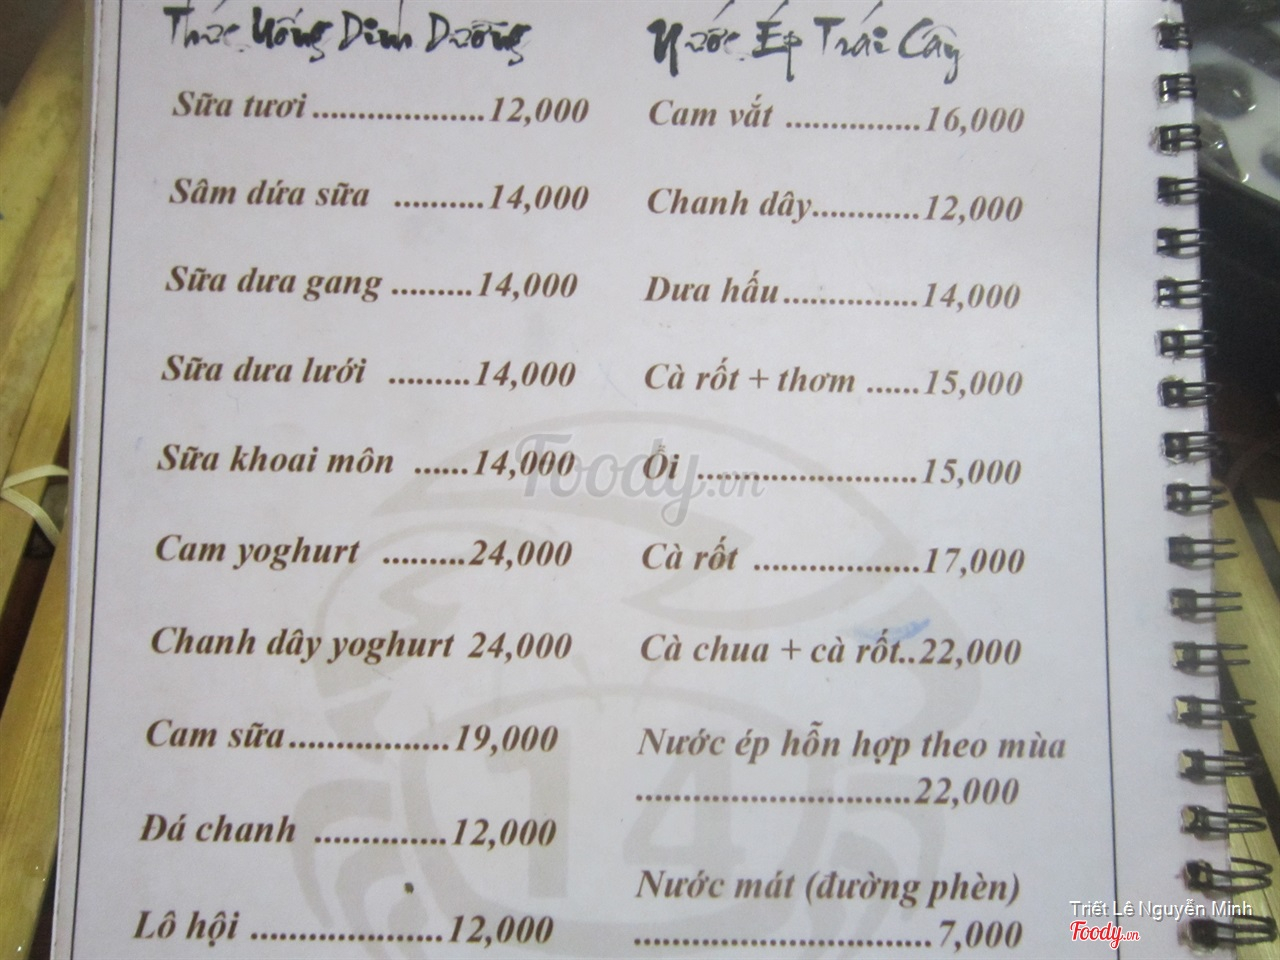 Thức Uống Dinh Dưỡng
Sữa tươi ...................12,000
Sâm dứa sữa ..........14,000
Sữa dưa gang .........14,000
Sữa dưa lưới .........14,000
Sữa khoai môn ......14,000
Cam yoghurt .........24,000
Chanh dây yoghurt 24,000
Cam sữa..................19,000
Đá chanh ...............12,000
Lô hội .....................12,000
Nước Ép Trái Cây
Cam vắt ...............16,000
Chanh dây............12,000
Dưa hấu...............14,000
Cà rốt + thơm ......15,000
Ổi ........................15,000
Cà rốt ..................17,000
Cà chua + cà rốt..22,000
Nước ép hỗn hợp theo mùa
..............................22,000
Nước mát (đường phèn)
.................................7,000
Foody.vn
14
Triết Lê Nguyễn Minh
Foody.vn